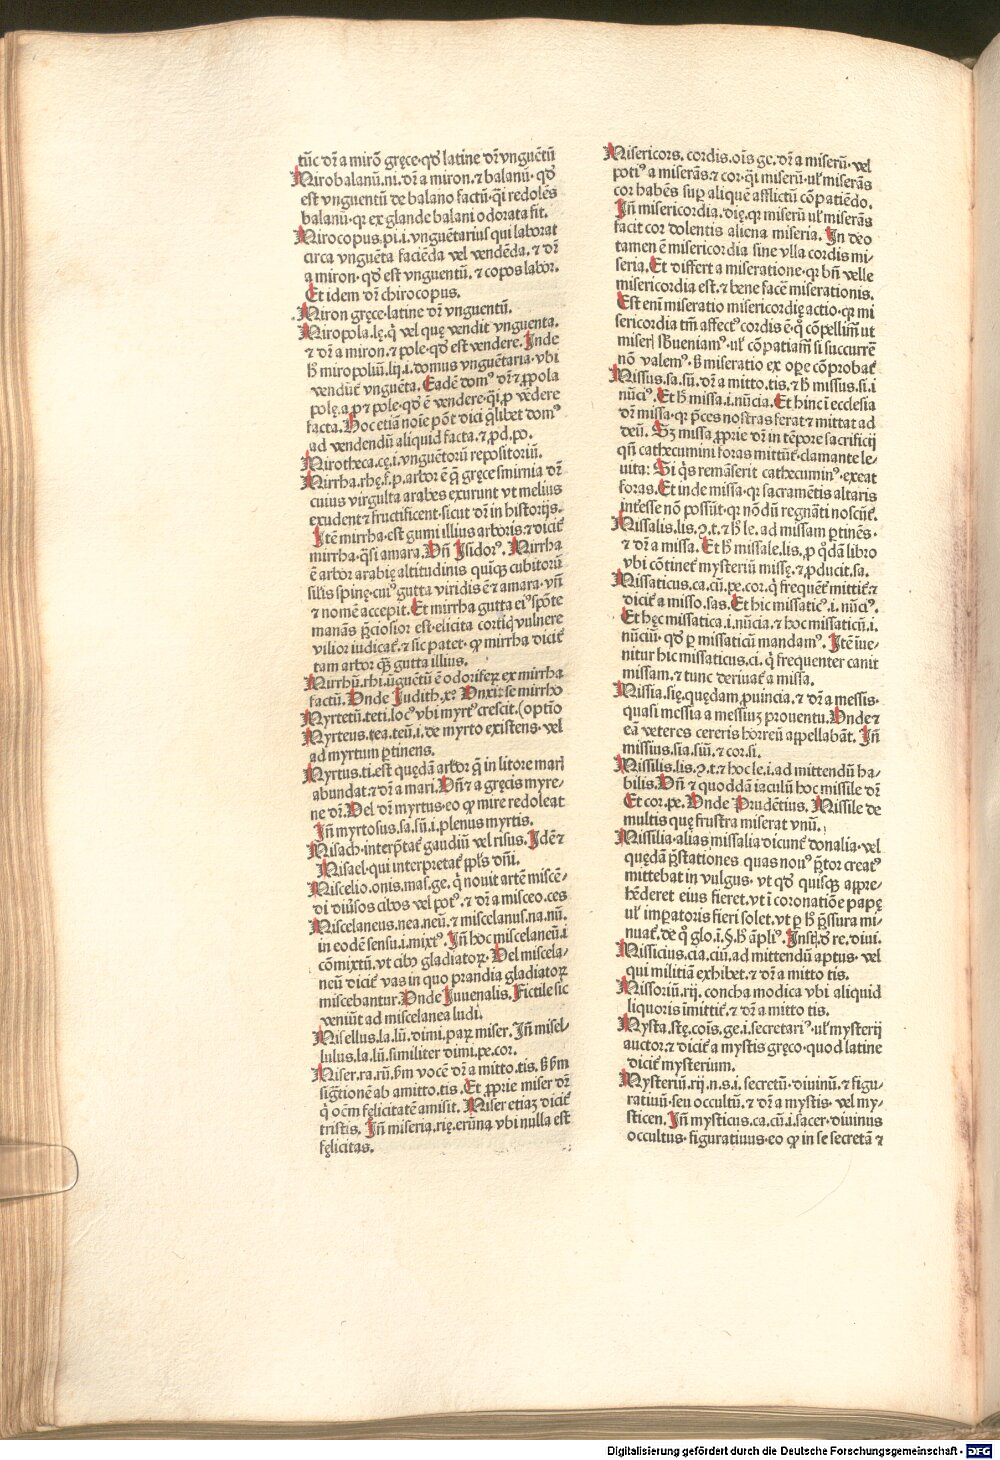 tūc dr̄ a mirō gręce·qđ latine dr̄ vnguētū
Mirobalanū.ni.dr̄ a miron.⁊ balanū· qđ
est vnguentū de balano factū·q̄i redolēs
balanū·qꝛ ex glande balani odorata fit.
Mirocopus.pi.i.vnguētarius qui laborat
circa vnguēta faciēda vel vendēda.⁊ dr̄
a miron· qđ est vnguentū.⁊ copos labor.
Et idem dr̄ chirocopus.
Miron gręce·latine dr̄ vnguentū.
Miropola.lę.q̇ vel quę vendit vnguenta.
⁊ dr̄ a miron.⁊ pole·qđ est vendere.Inde
h̄ miropoliū.lij.i.domus vnguētaria·vbi
vendūt᷑ vnguēta. Eadē dom⁹ dr̄ ⁊ ꝓpola
polę.a ꝓ ⁊ pole·qđ ē vendere·q̄i ꝓ vēdere
facta.Hoc etiā noīe pōt dici q̇libet dom⁹
ad vendendū aliquid facta.⁊ ꝓd.po.
Mirotheca.cę.i.vnguētorū repositoriū.
Mirrha.rhę.f.p.arbor ē q̄ gręce smirnia dr̄
cuius virgulta arabes exurunt vt melius
exudent ⁊ fructificent·sicut dr̄ in historijs.
Itē mirrha·est gumi illius arboris·⁊ dicit᷑
mirrha·q̄si amara.Vn̄ Isidor⁹. Mirrha
ē arbor arabię altitudinis quinq; cubitorū
silis spinę·cui⁹ gutta viridis ē ⁊ amara·vn̄
⁊ nomē accepit.Et mirrha gutta ei⁹ spōte
manās p̄ciosior est·elicita corticis vulnere
vilior iudicat᷑.⁊ sic patet· ꝙ mirrha dicit᷑
tam arbor q̄ꝫ gutta illius.
Mirrhū.rhi.ūguētū ē odoriferꝝ ex mirrha
factū.Vnde Judith.xͦ. Vnxit se mirrho
Myrtetū.teti.loc⁹ vbi myrt⁹ crescit.(optīo
Myrteus.tea.teū.i.de myrto existens· vel
ad myrtum ꝑtinens.
Myrtus.ti.est quędā arbor q̄ in litore mari
abundat·⁊ dr̄ a mari.Vn̄ ⁊ a gręcis myre-
ne dr̄.Vel dr̄ myrtus·eo ꝙ mire redoleat
In̄ myrtosus.sa.sū.i.plenus myrtis.
Misach·interp̄tat᷑ gaudiū vel risus. Idē ⁊
Misael·qui interpretat᷑ ppl̄s dn̄i.
Miscelio.onis.mas.ge. q̇ nouit artē miscē-
di diūsos cibos vel pot⁹.⁊ dr̄ a misceo.ces
Miscelaneus.nea.neū.⁊ miscelanus.na.nū.
in eodē sensu.i.mixt⁹.In̄ hoc miscelaneū.i
cōmixtū.vt cib⁹ gladiatoꝝ·Vel miscela-
neū dicit᷑ vas in quo prandia gladiatoꝝ
miscebantur.Vnde Juuenalis. Fictile sic
veniūt ad miscelanea ludi.
Misellus.la.lū.dimi.parꝝ miser.In̄ misel-
lulus.la.lū.similiter dimi.pe.cor.
Miser.ra.rū.ẜm vocē dr̄ a mitto.tis. ẜ ẜm
sig̃tionē ab amitto.tis. Et ꝓprie miser dr̄
q̇ oēm fęlicitatē amisit. Miser etiaꝫ dicit᷑
tristis. In̄ miseria.rię.erūna vbi nulla est
fęlicitas.
Misericors. cordis.oīs ge.dr̄ a miserū· vel
poti⁹ a miserās.⁊ cor·q̄i miserū·ul᷑ miserās
cor habēs suꝑ aliquē afflictū cōpatiēdo.
In̄ misericordia.dię.qꝛ miserū ul᷑ miserās
facit cor dolentis aliena miseria. In deo
tamen ē misericordia sine vlla cordis mi-
seria.Et differt a miseratione·qꝛ bn̄ velle
misericordia est.⁊ bene facē miserationis.
Est eni miseratio misericordię actio·qꝛ mi
sericordia tm̄ affect⁹ cordis ē·q̇ cōpellimur ut
miseris sb̄ueniam⁹·ul᷑ cōpatiam̄ si succurrē
nō valem⁹. ẜ miseratio ex oꝑe cōprobat᷑
Missus.sa.sū.dr̄ a mitto.tis.⁊ h̄ missus.si.i
nūci⁹.Et h̄ missa.i.nūcia.Et hinc ī ecclesia
dr̄ missa·qꝛ p̄ces nostras ferat ⁊ mittat ad
deū. Sꝫ missa ꝓprie dr̄ in tēpore sacrificij
qn̄ cathecumini foras mittūt᷑·clamante le-
uita: Si q̇s remāserit cathecumin⁹·exeat
foras.Et inde missa·qꝛ sacramētis altaris
intēsse nō possūt·qꝛ nōdū regnāti noscūt᷑.
Missalis.lis.ꝯ.t.⁊ h̄ le.ad missam ꝑtinēs·
⁊ dr̄ a missa. Et h̄ missale.lis.ꝓ q̇dā libro
vbi cōtinet᷑ mysteriū missę.⁊ ꝓducit.sa.
Missaticus.ca.cū.pe.cor.q̇ frequēt᷑ mittit᷑·⁊
dicit᷑ a misso.sas.Et hic missatic⁹.i.nūci⁹.
Et hęc missatica.i.nūcia.⁊ hoc missaticū.i.
nūciū· qđ ꝑ missaticū mandam⁹. Itē īue-
nitur hic missaticus.ci. q̇ frequenter canit
missam.⁊ tunc deriuat᷑ a missa.
Missia.się.quędam ꝓuincia.⁊ dr̄ a messis·
quasi messia a messiuꝫ prouentu.Vnde ⁊
eā veteres cereris horreū appellabāt. In̄
missius.sia.siū.⁊ cor.si.
Missilis.lis.ꝯ.t.⁊ hoc le.i.ad mittendū ha-
bilis.Vn̄ ⁊ quoddā iaculū hoc missile dr̄
Et cor.pe.Vnde Prudētius. Missile de
multis quę frustra miserat vnū.
Missilia·alias missalia dicunt᷑ donalia·vel
quędā p̄stationes quas nou⁹ p̄tor creat⁹
mittebat in vulgus· vt qđ quisq; appre-
hēderet eius fieret.vt ī coronatiōe papę
ul᷑ imꝑatoris fieri solet.vt ꝑ h̄ p̄ssura mi-
nuat᷑.de q̇ glo.ī.§.h̄ āpli⁹.Insti.đ re.diui.
Missicius.cia.ciū.ad mittendū aptus· vel
qui militiā exhibet.⁊ dr̄ a mitto tis.
Missoriū.rij. concha modica vbi aliquid
liquoris īmittit᷑.⁊ dr̄ a mitto tis.
Mysta.stę.cōis.ge.i.secretari⁹·ul᷑ mysterij
auctor.⁊ dicit᷑ a mystis gręco·quod latine
dicit᷑ mysterium.
Mysteriū.rij.n.s.i.secretū·diuinū.⁊ figu-
ratiuū·seu occultū.⁊ dr̄ a mystis· vel my-
sticen. In̄ mysticus.ca.cū.i.sacer·diuinus
occultus· figuratiuus·eo ꝙ in se secretā ⁊
Digitalisierung gefördert durch die Deutsche Forschungsgemeinschaft - DFG